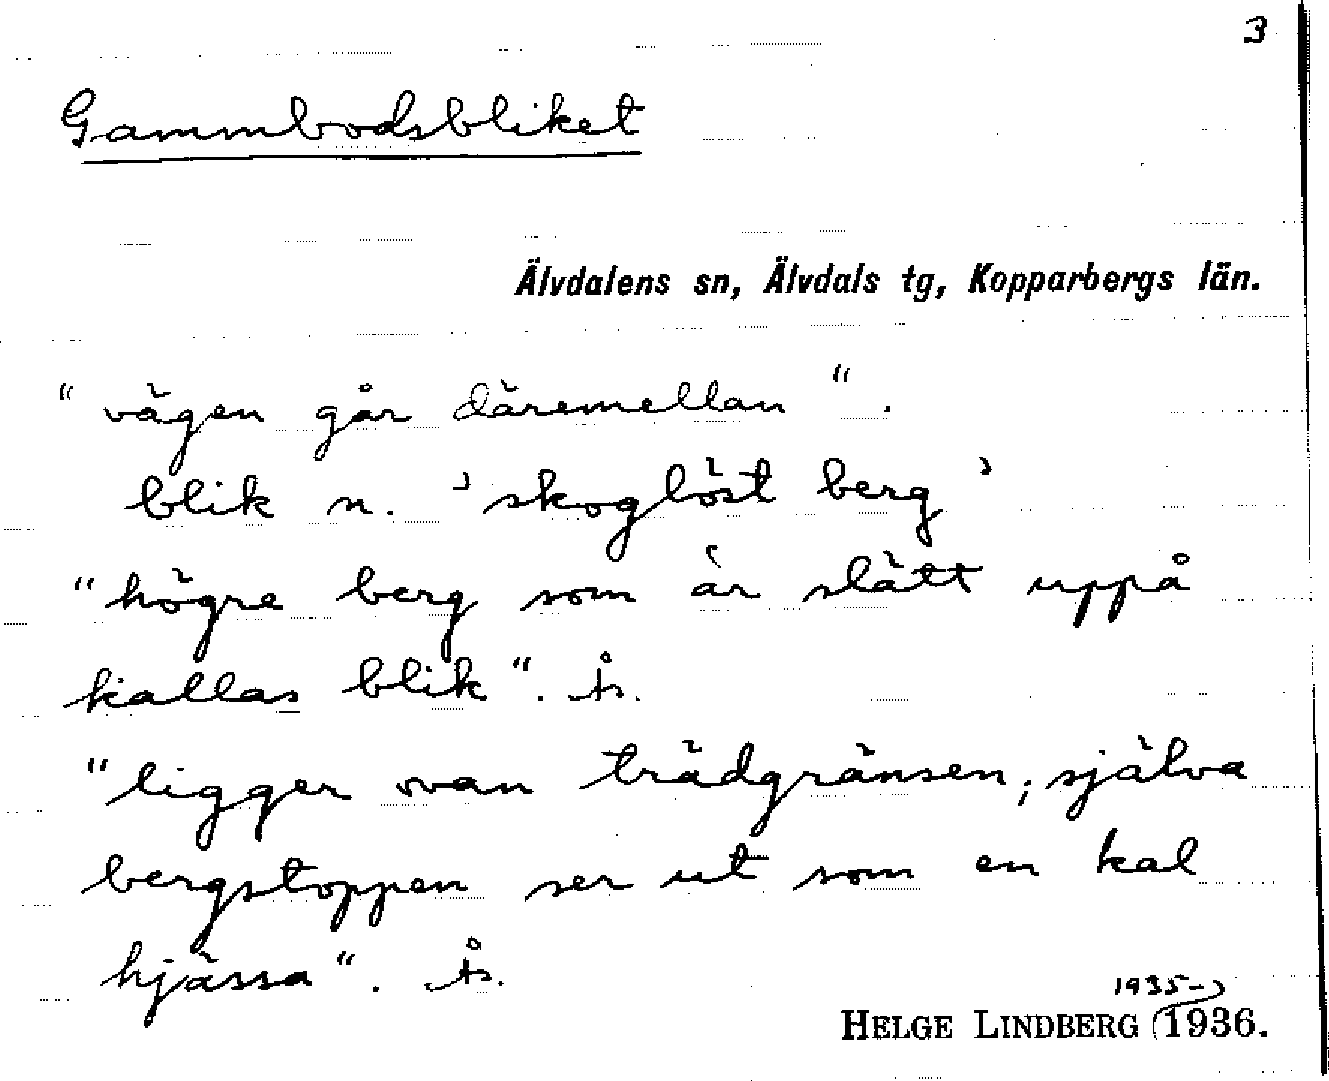 3
Gammbodsbliket
Älvdalens sn, Älvdals tg, Kopparbergs län.
"vägen går däremellan".
blik n. 'skoglöst berg'
"högre berg som är slätt uppå
kallas blik". Ås.
"ligger ovan trädgränsen, själva
bergstoppen ser ut som en kal
hjässa". Ås.
1935-
HELGE LINDBERG 1936.